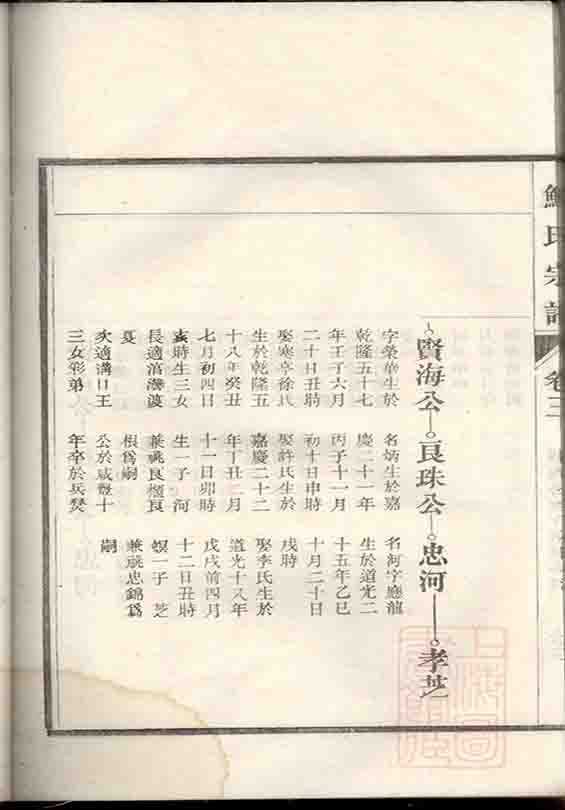 鮑氏宗譜
卷三
賢海公 良珠公 忠河 孝芝
字榮華生於
乾隆五十七
年壬子六月
二十日丑時
娶寒亭徐氏
生於乾隆五
十八年癸丑
七月初四日
亥時生三女
長適灣
夏
次適溝口王
三女彩弟
名炳生於嘉
慶二十一年
丙子十一月
初十日申時
娶許氏生於
嘉慶二十二
年丁丑二月
十一日卯時
生一子 河
兼祧良櫃良
根爲嗣
公於咸豐十
年卒於兵燹
名河字應龍
生於道光二
十五年乙巳
十月二十日
戌時
娶李氏生於
道光十八年
戊戌前四月
十二日丑時
一子 芝
兼祧忠錦爲
嗣
上海圖書館藏